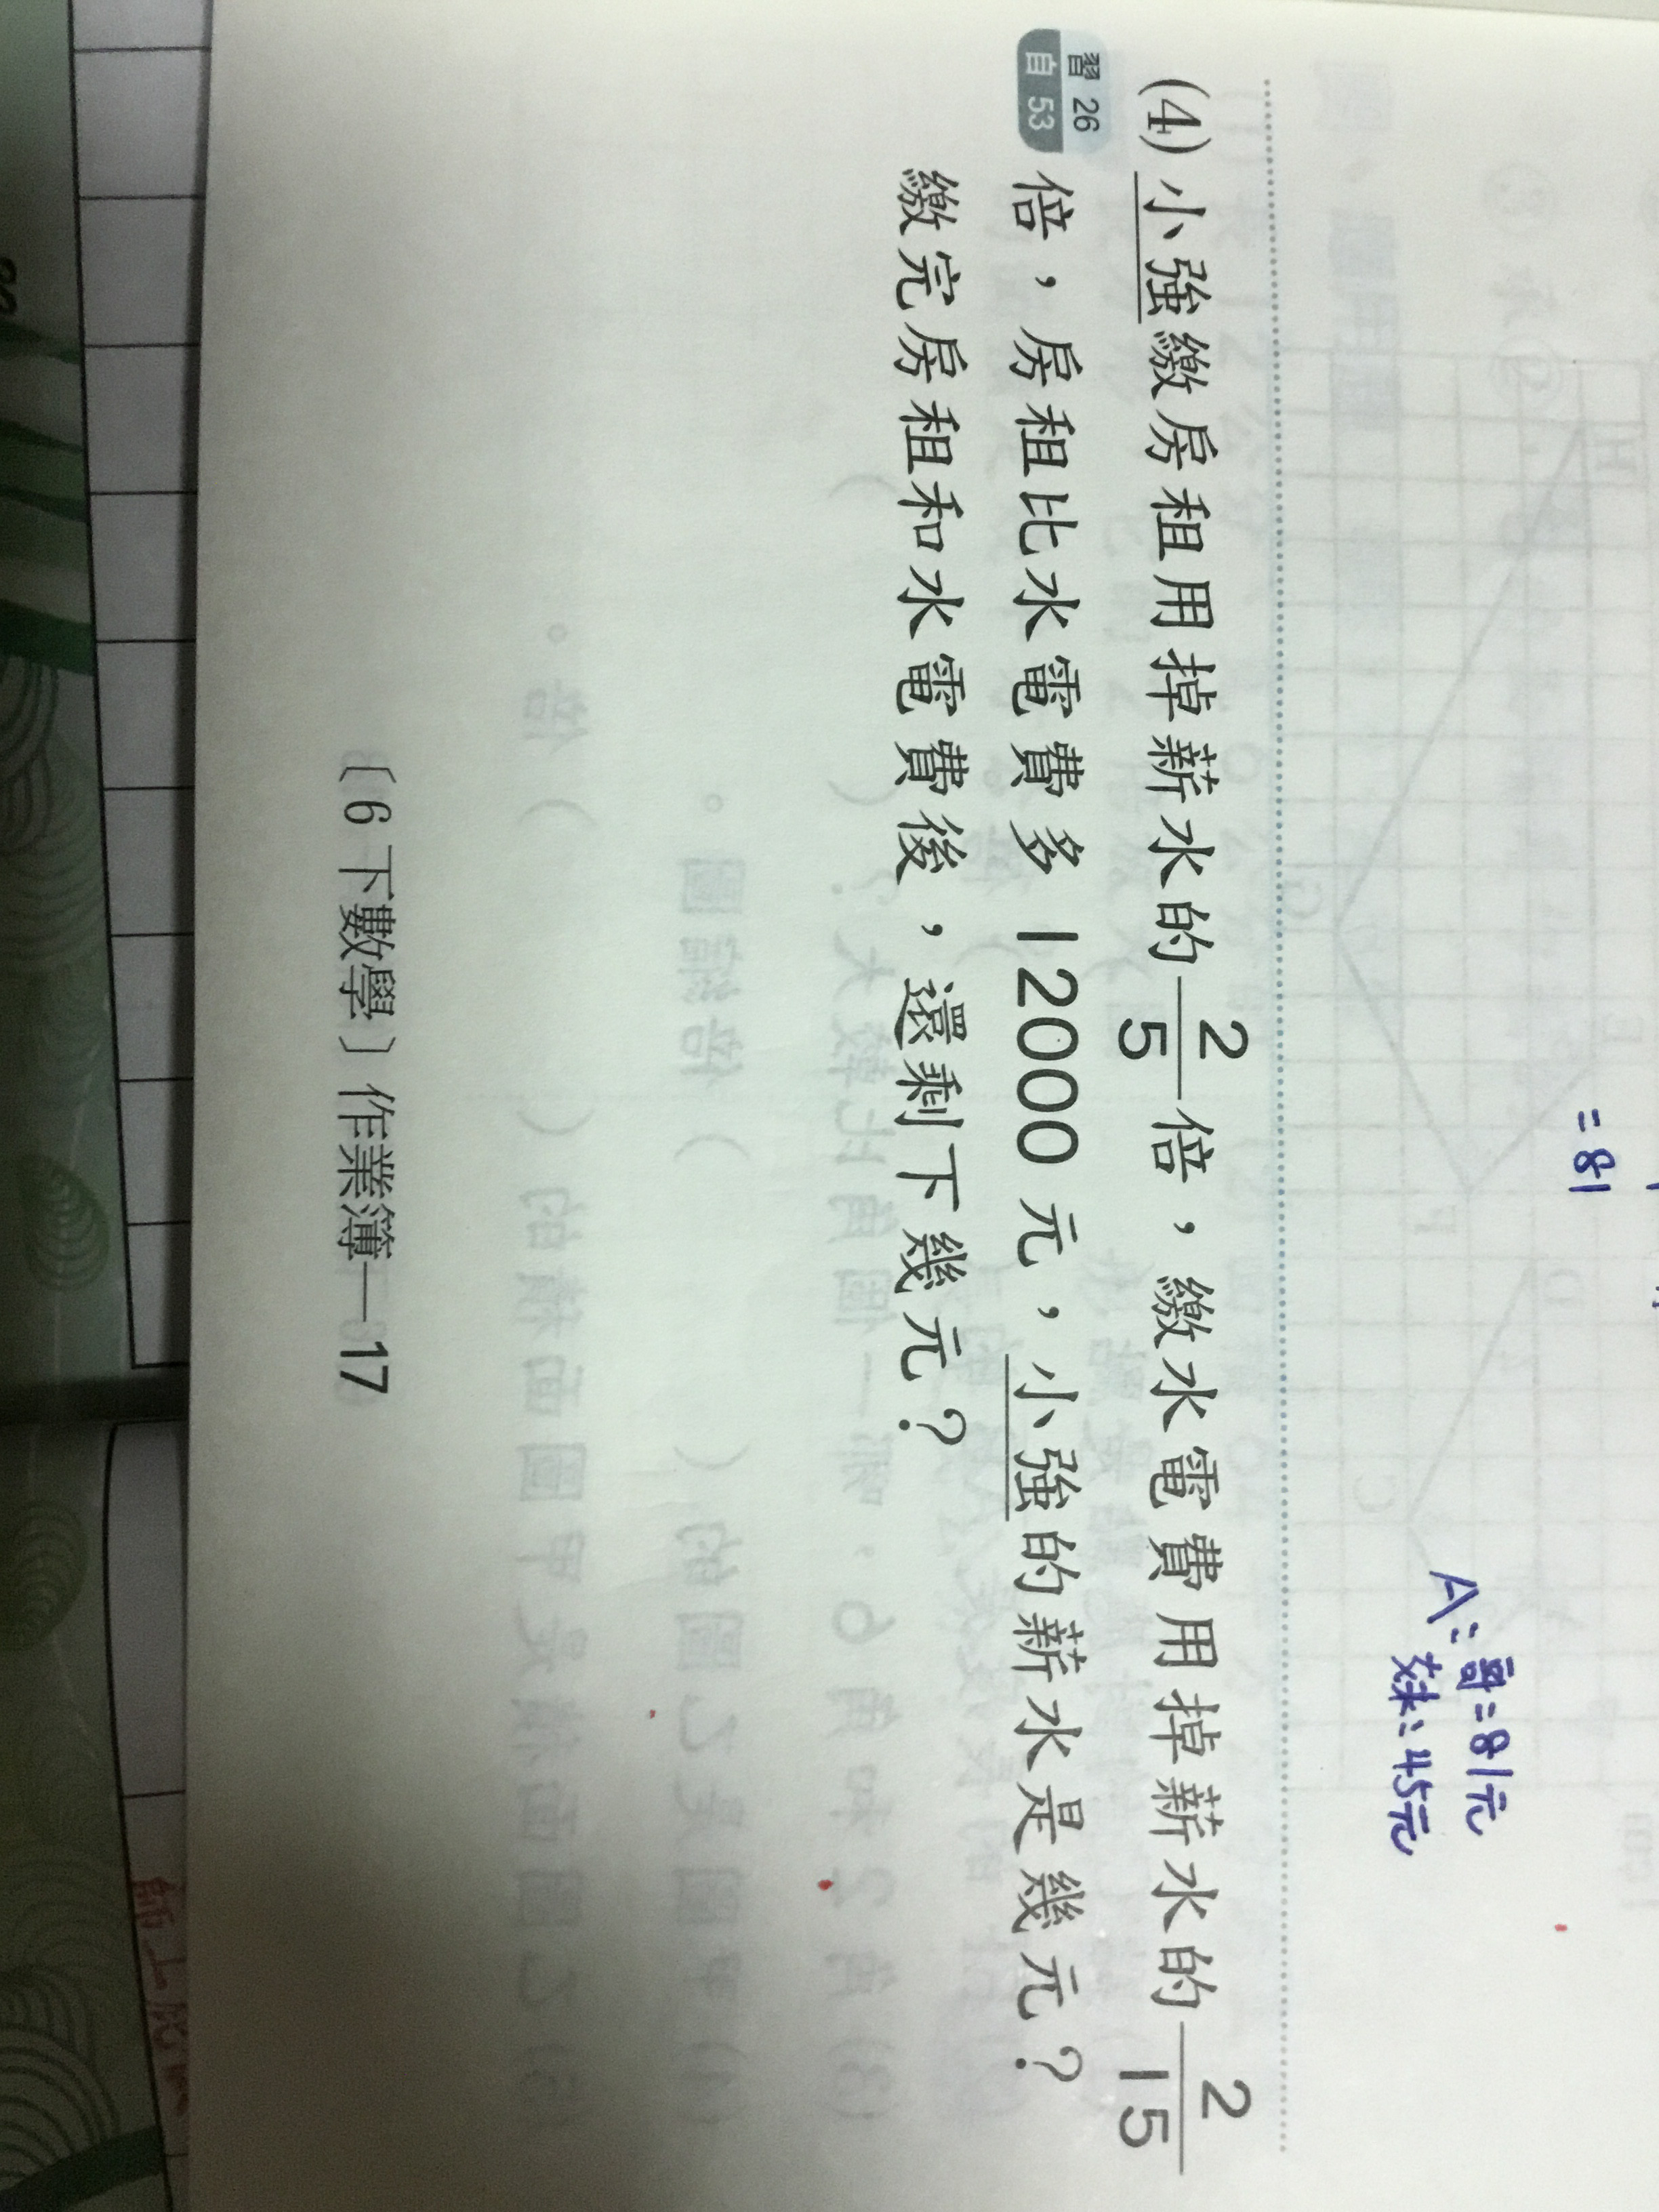 = 81
A：哥=81元
妹：45元
(4) 小強繳房租用掉薪水的 2/5 倍，繳水電費用掉薪水的 2/15
習 26
自 53
倍，房租比水電費多 12000 元，小強的薪水是幾元？
繳完房租和水電費後，還剩下幾元？
〔6 下數學〕作業簿—17